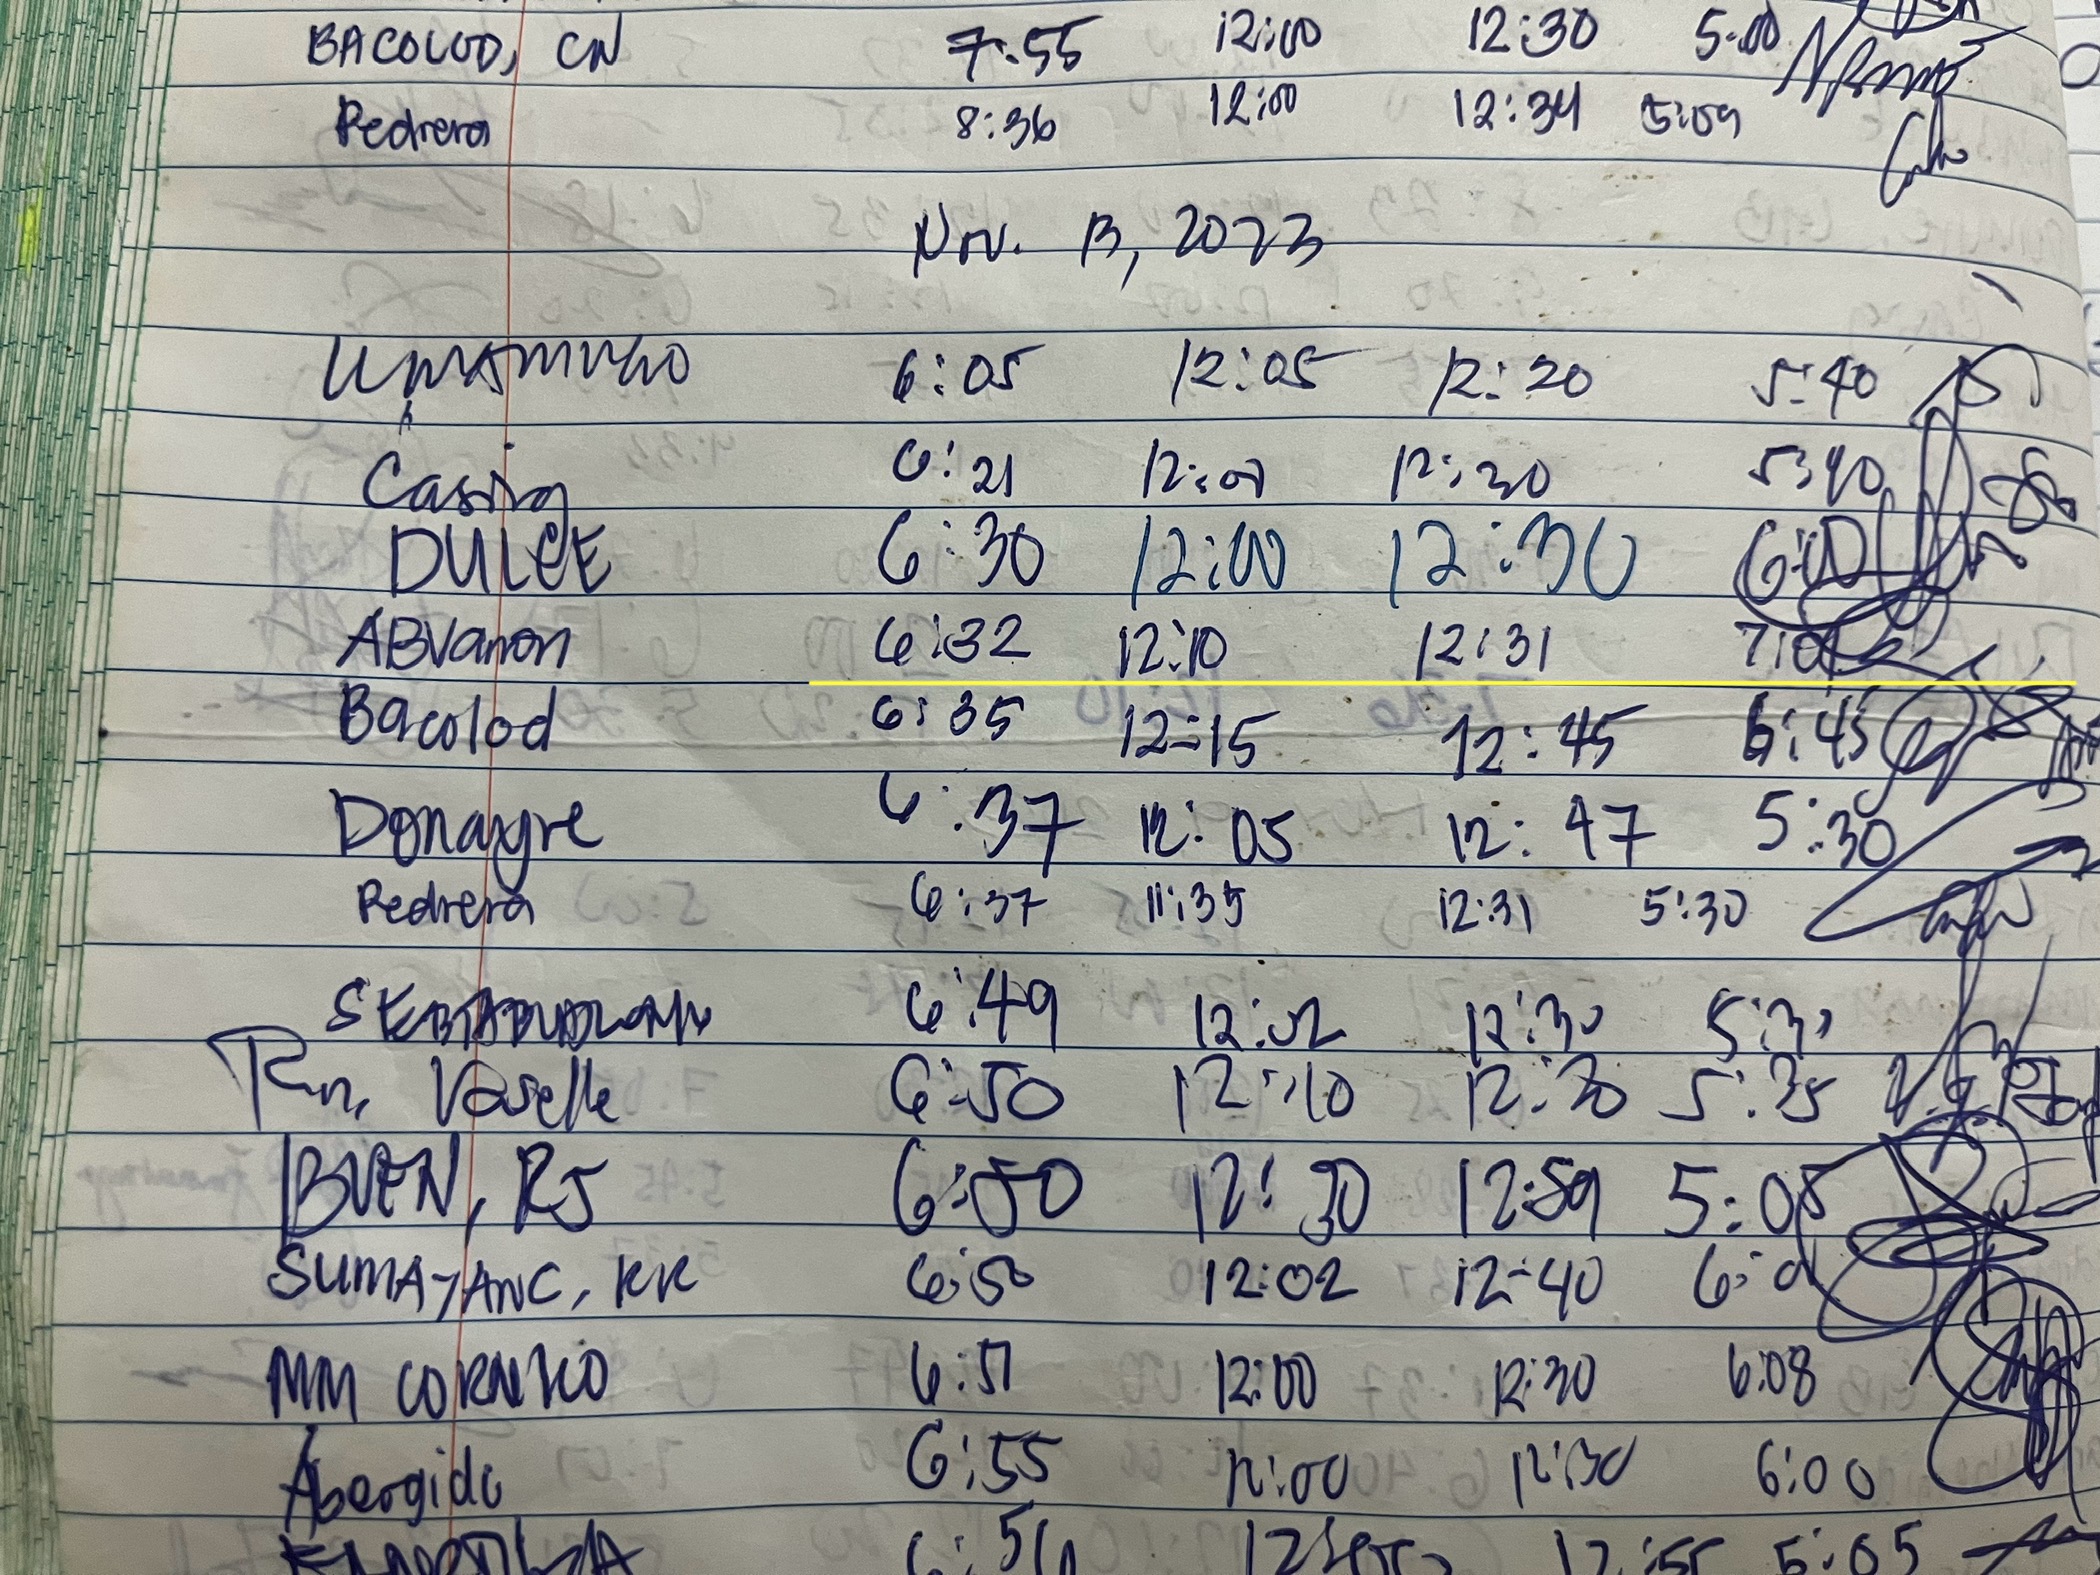 BACOLOD, CN 7:55 12:00 12:30 5:00
Pedrera 8:36 12:00 12:34 5:09
Nov. 13, 2023
6:05 12:05 12:20 5:40
Casing 6:21 12:01 12:30 5:40
DULCE 6:30 12:00 12:30 6:00
ABVanon 6:32 12:10 12:31
Bacolod 6:35 12:15 12:45 6:45
Donayre 6:37 12:05 12:47 5:30
Pedrera 6:37 11:35 12:31 5:30
6:49 12:02 12:30
6:50 12:10 12:30 5:35
BUEN, RJ 6:50 12:30 12:59 5:05
SUMAYANG, KK 6:50 12:02 12:40
MM CORNICO 6:51 12:00 12:30 6:08
Abergido 6:55 12:00 12:30 6:00
12:55 5:05